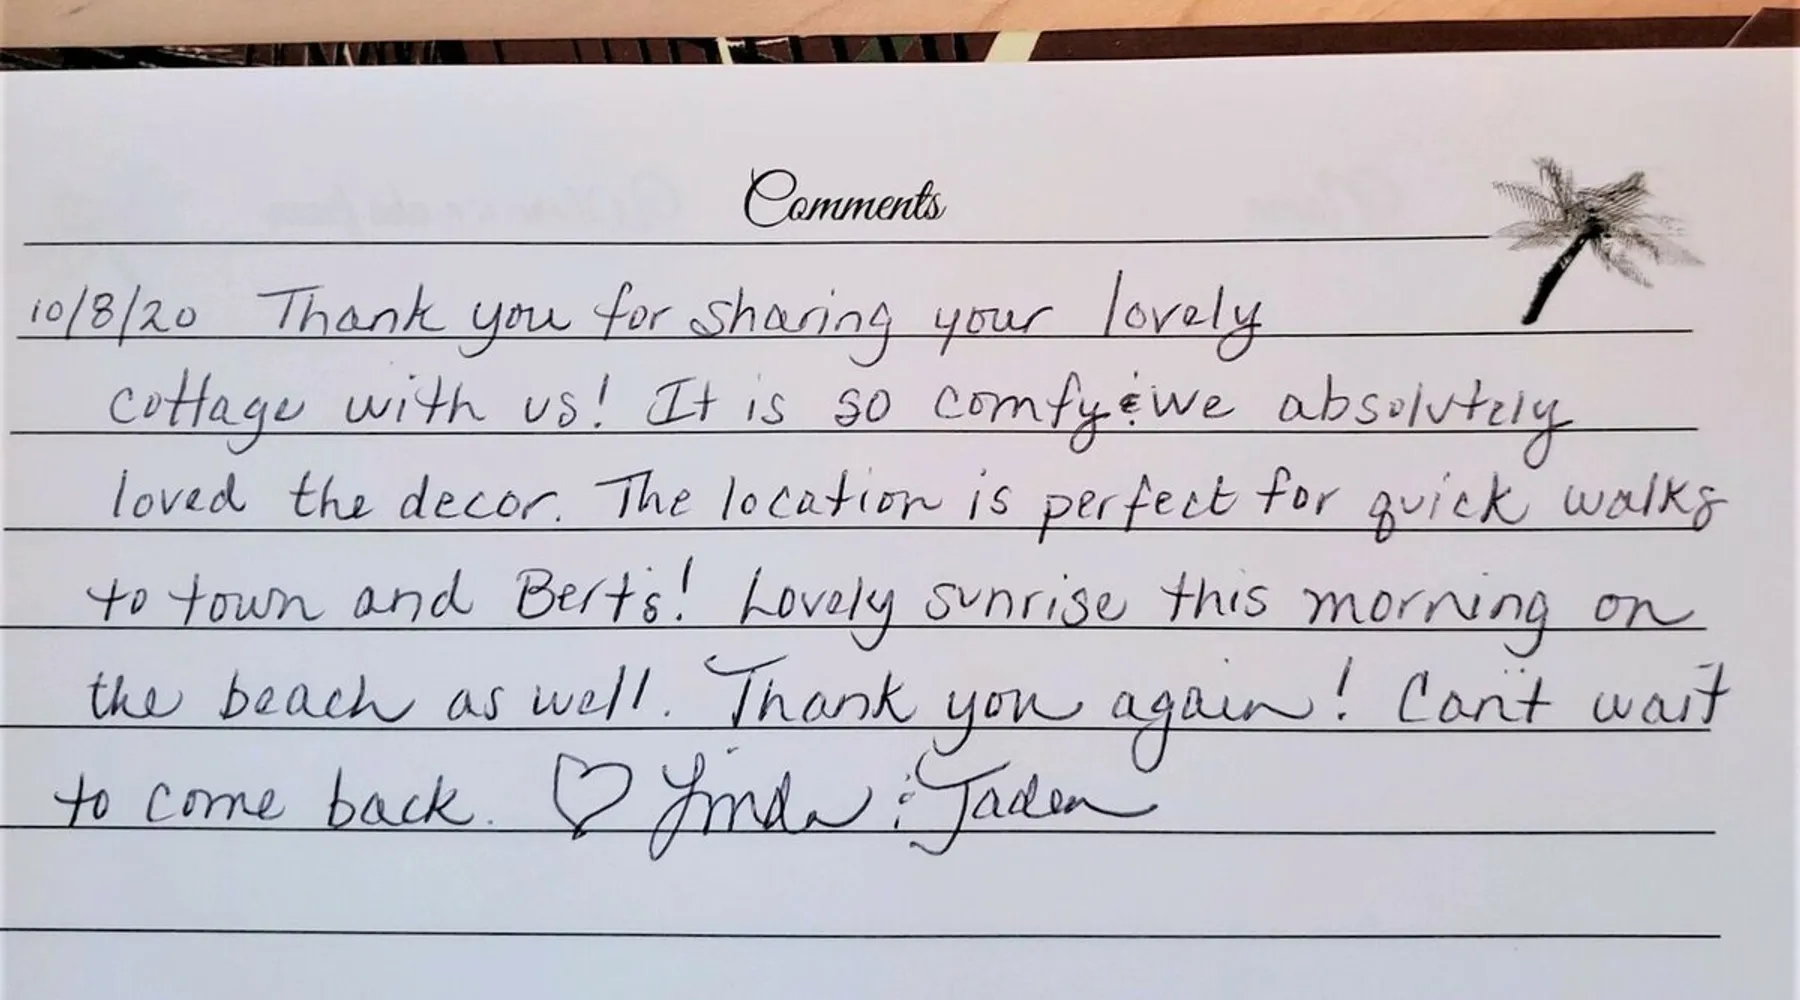 Comments
10/8/20 Thank you for sharing your lovely
cottage with us! It is so comfy & we absolutely
loved the decor. The location is perfect for quick walks
to town and Bert's! Lovely sunrise this morning on
the beach as well. Thank you again! Can't wait
to come back. ♡ Linda & Jaden